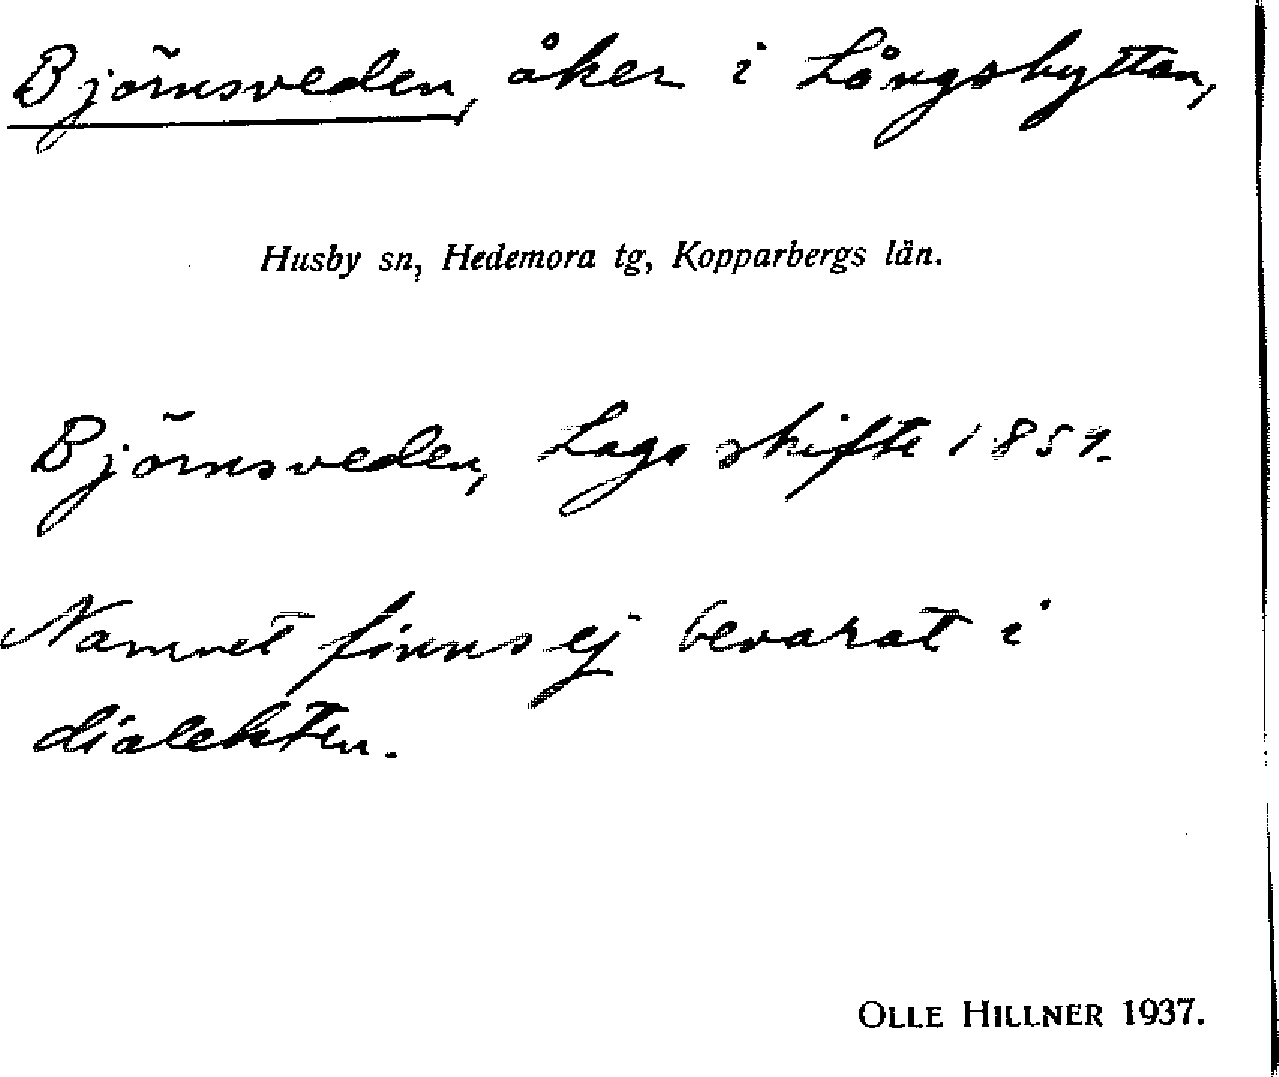 Björnsveden, åker i Långshyttan,
Husby sn, Hedemora tg, Kopparbergs län.
Björnsveden, Laga skifte 1851.
Namnet finns ej bevarat i
dialekten.
OLLE HILLNER 1937.